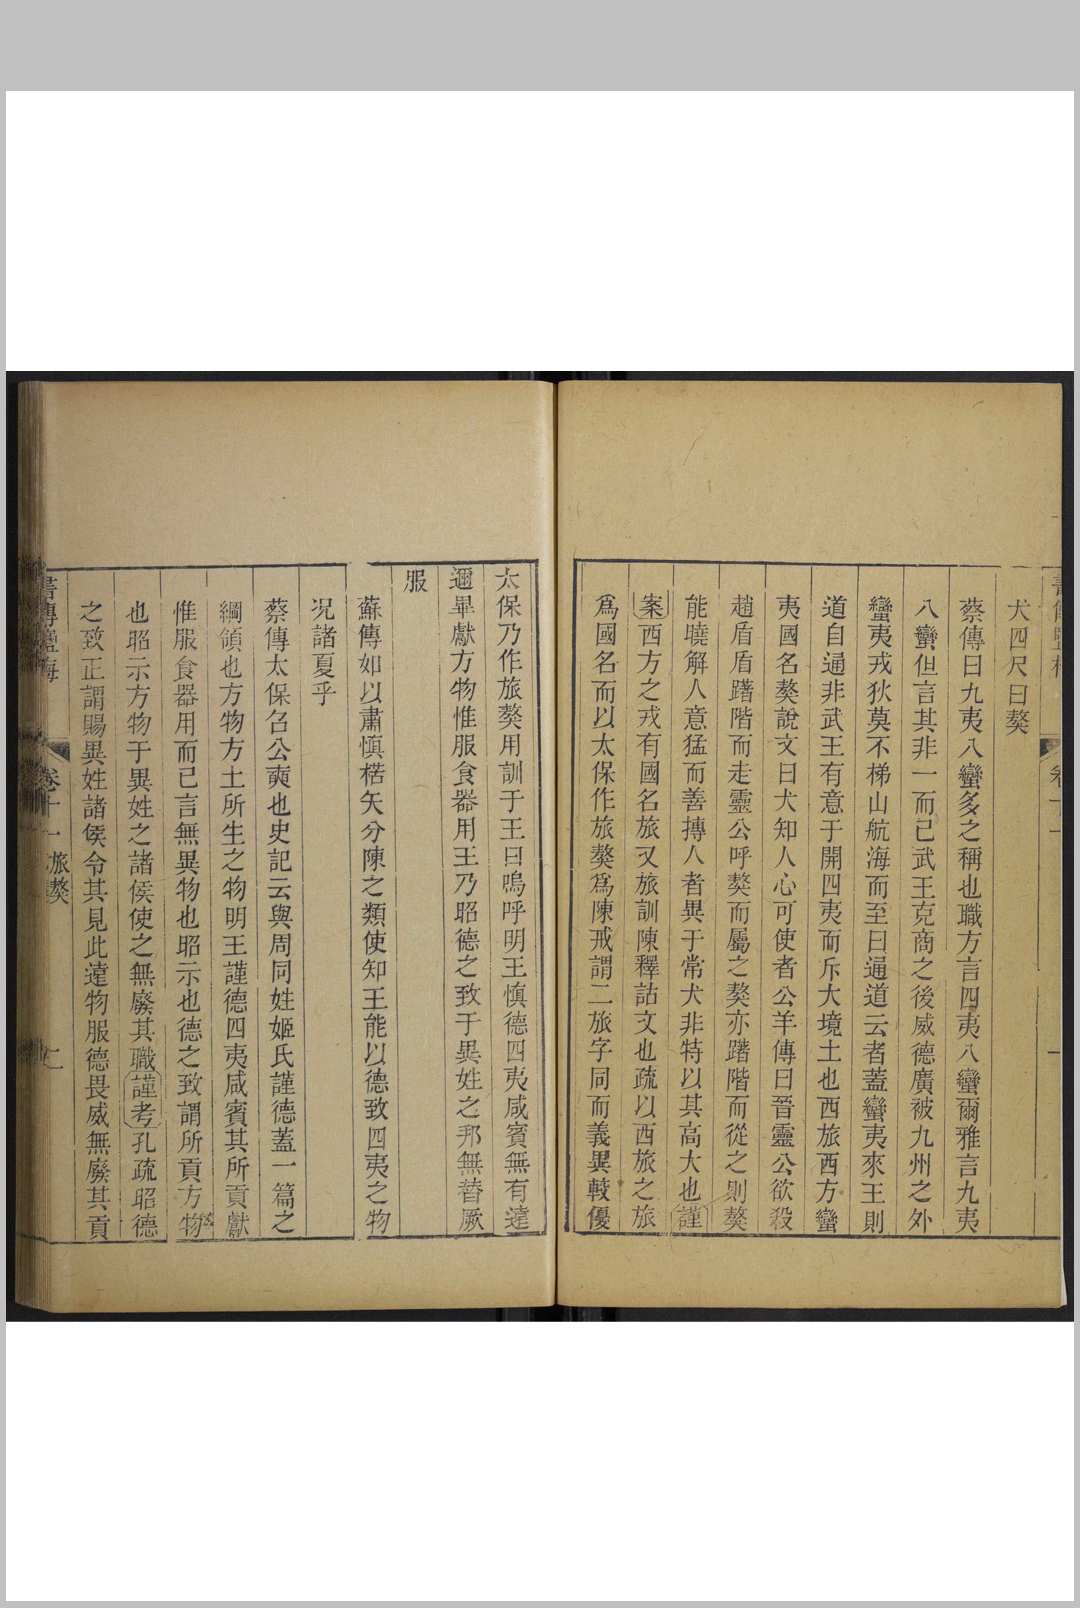 犬四尺曰獒
蔡傳曰九夷八蠻多之稱也職方言四夷八蠻爾雅言九夷
八蠻但言其非一而已武王克商之後威德廣被九州之外
蠻夷戎狄莫不梯山航海而至曰通道云者蓋蠻夷來王則
道自通非武王有意于開四夷而斥大境土也西旅西方蠻
夷國名獒說文曰犬知人心可使者公羊傳曰晉靈公欲殺
趙盾盾躇階而走靈公呼獒而屬之獒亦躇階而從之則獒
能曉解人意猛而善搏人者異于常犬非特以其高大也謹
案西方之戎有國名旅又旅訓陳釋詁文也疏以西旅之旅
爲國名而以太保作旅獒爲陳戒謂二旅字同而義異較優
太保乃作旅獒用訓于王曰嗚呼明王慎德四夷咸賓無有遠
邇畢獻方物惟服食器用王乃昭德之致于異姓之邦無替厥
服
蘇傳如以肅慎楛矢分陳之類使知王能以德致四夷之物
况諸夏乎
蔡傳太保召公奭也史記云與周同姓姬氏謹德蓋一篇之
綱領也方物方土所生之物明王謹德四夷咸賓其所貢獻
惟服食器用而已言無異物也昭示也德之致謂所貢方物
也昭示方物于異姓之諸侯使之無廢其職謹考孔疏昭德
之致正謂賜異姓諸侯令其見此遠物服德畏威無廢其貢
卷十一 旅獒